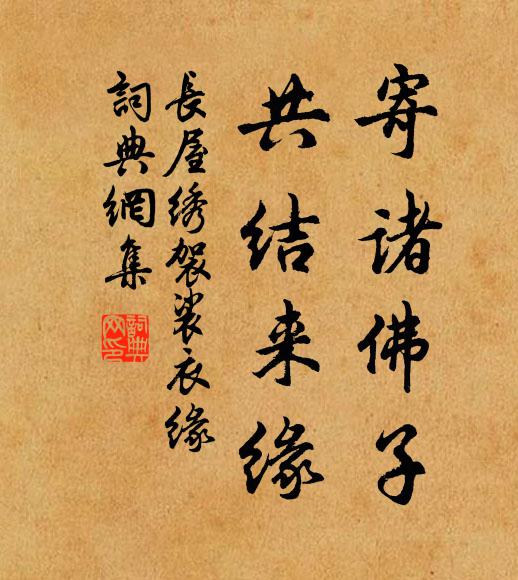 寄诸佛子
共结来缘
長屋绣袈裟衣缘
詞典網集
詞典網印